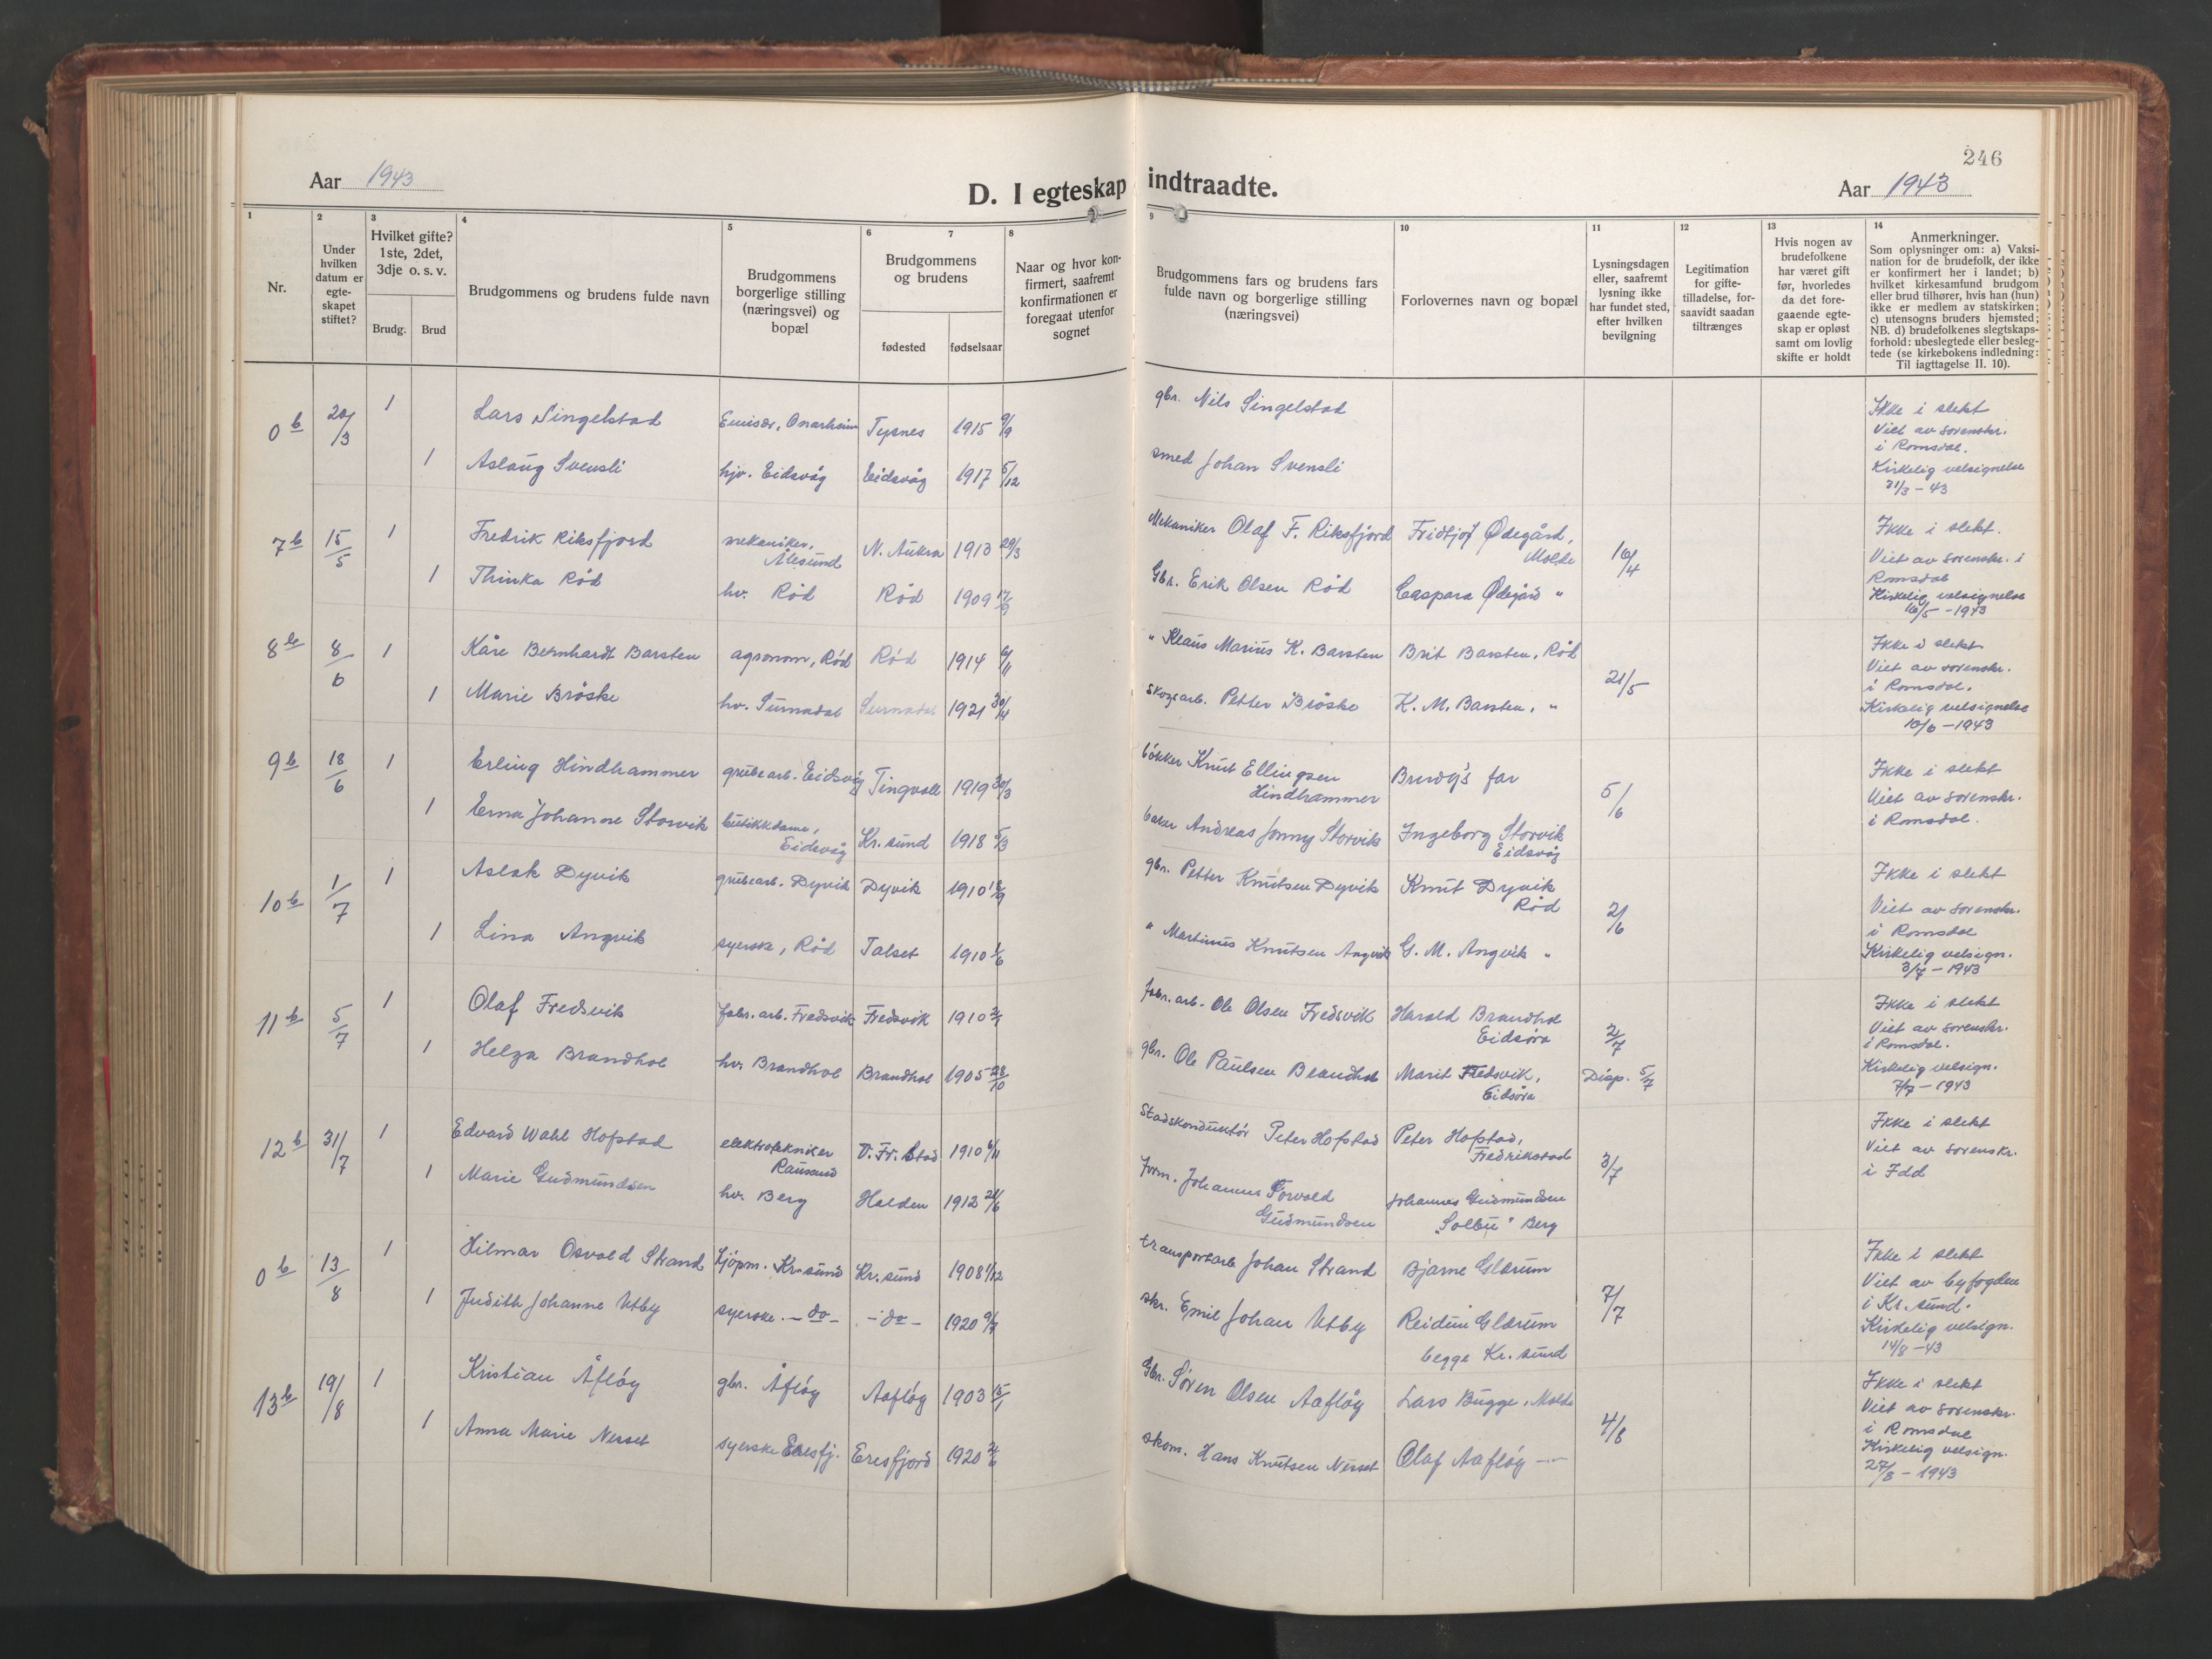 246
Aar 1943
D. I egteskap indtraadte.
Aar 1943
1
2
3
4
5
6
7
8
9
10
11
12
13
14
Nr.
Under hvilken datum er egte-skapet stiftet?
Hvilket gifte? 1ste, 2det, 3dje o. s. v.
Brudg.
Brud
Brudgommens og brudens fulde navn
Brudgommens borgerlige stilling (næringsvei) og bopæl
Brudgommens og brudens
fødested
fødselsaar
Naar og hvor kon-firmert, saafremt konfirmationen er foregaat utenfor sognet
Brudgommens fars og brudens fars fulde navn og borgerlige stilling (næringsvei)
Forlovernes navn og bopæl
Lysningsdagen eller, saafremt lysning ikke har fundet sted, efter hvilken bevilgning
Legitimation for gifte-tilladelse, for-saavidt saadan tiltrænges
Hvis nogen av brudefolkene har været gift før, hvorledes da det fore-gaaende egte-skap er opløst samt om lovlig skifte er holdt
Anmerkninger.
Som oplysninger om: a) Vaksi-nation for de brudefolk, der ikke er konfirmert her i landet; b) hvilket kirkesamfund brudgom eller brud tilhører, hvis han (hun) ikke er medlem av statskirken; c) utensogns bruders hjemsted; NB. d) brudefolkenes slegtskaps-forhold: ubeslegtede eller besleg-tede (se kirkebokens indledning: Til iagttagelse II. 10).
0 b 20/3 1 Lars Singelstad Emisær, Onarheim Tysnes 1915 9/9 gbr. Nils Singelstad
1 Aslaug Svensli hjv. Eidsvåg Eidsvåg 1917 5/12 smed Johan Svensli
Ikke i slekt
Viet av sorenskr.
i Romsdal.
Kirkelig velsignelse
31/3 - 43
7 b 15/5 1 Fredrik Riksfjord mekaniker, Ålesund N. Aukra 1913 29/3 Mekaniker Olaf F. Riksfjord Fridtjof Ødegård, Molde 16/4
1 Thinka Rød hv. Rød Rød 1909 17/9 Gbr. Erik Olsen Rød Caspara Ødegård "
Ikke i slekt.
Viet av sorenskr. i
Romsdal
Kirkelig velsignelse
16/5 - 1943
8 b 8/6 1 Kåre Bernhardt Barsten agronom, Rød Rød 1914 6/11 " Klaus Marius K. Barsten Brit Barsten, Rød 21/5
1 Marie Brøske hv. Surnadal Surnadal 1921 30/4 skogsarb. Petter Brøske K. M. Barsten, "
Ikke i slekt
Viet av sorenskr.
i Romsdal.
Kirkelig velsignelse
10/6 - 1943
9 b 18/6 1 Erling Hindhammer grubearb. Eidsvåg Tingvoll 1919 30/3 bøkker Knut Ellingsen Hindhammer Brudg's far 5/6
1 Erna Johanne Storvik butikkdame, Eidsvåg Kr.sund 1918 5/3 baker Andreas Jonny Storvik Ingeborg Storvik Eidsvåg
Ikke i slekt
Viet av sorenskr.
i Romsdal.
10 b 1/7 1 Aslak Dyvik grubearb. Dyvik Dyvik 1910 18/9 gbr. Petter Knutsen Dyvik Knut Dyvik Rød 2/6
1 Lina Angvik syerske, Rød Talset 1910 1/6 " Martinus Knutsen Angvik G. M. Angvik "
Ikke i slekt
Viet av sorenskr.
i Romsdal
Kirkelig velsign.
3/7 - 1943
11 b 5/7 1 Olaf Fredsvik fabr. arb. Fredsvik Fredsvik 1910 fabr. arb. Ole Olsen Fredsvik Harald Brandhol Eidsøra 2/7
1 Helga Brandhol hv. Brandhol Brandhol 1905 28/10 gbr. Ole Paulsen Brandhol Marit Fredsvik, Eidsøra Disp. 5/7
Ikke i slekt
Viet av sorenskr.
i Romsdal.
Kirkelig velsign.
7/7 - 1943
12 b 31/7 1 Edvard Wahl Hofstad elektrotekniker Rausand V. Fr.stad 1910 6/11 Stadskonduktør Peter Hofstad Peter Hofstad, Fredrikstad 3/7
1 Marie Gudmundsen hv. Berg Halden 1912 21/6 form. Johannes Torvald Gudmundsen Johannes Gudmundsen "Solbu" Berg
Ikke i slekt
Viet av sorenskr.
i Idd
0 b 13/8 1 Hilmar Osvald Strand kjøpm. Kr.sund Kr.sund 1908 1/12 transportarb Johan Strand Bjarne Glærum 7/7
1 Judith Johanne Utby syerske. - do - - do - 1920 9/7 skr. Emil Johan Utby Reidun Glærum
begge Kr. sund
Ikke i slekt
Viet av byfogden
i Kr. sund.
Kirkelig velsign.
14/8 - 43
13 b 19/8 1 Kristian Åfløy gbr. Åfløy Aafløy 1903 15/1 Gbr. Søren Olsen Aafløy Lars Bugge, Molde 4/8
1 Anna Marie Nesset syerske Eresfj. Eresfjord 1920 2/6 skom. Hans Knutsen Nesset Olaf Aafløy -"-
Ikke i slekt
Viet av sorenskr.
i Romsdal
Kirkelig velsign.
27/8 - 1943